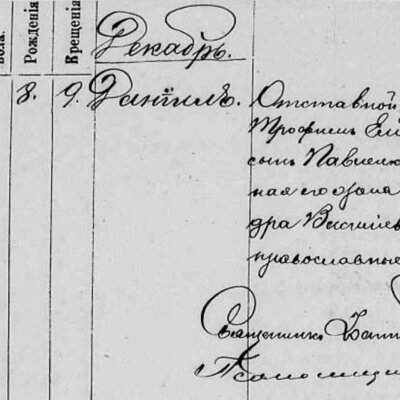 Рожденія
Крещенія
Декабрь.
8. 9. Даніилъ.
Отставной
Трофимъ
сынъ Павленко
ная его жена
дра Василіев
православные
Священникъ
Псаломщик